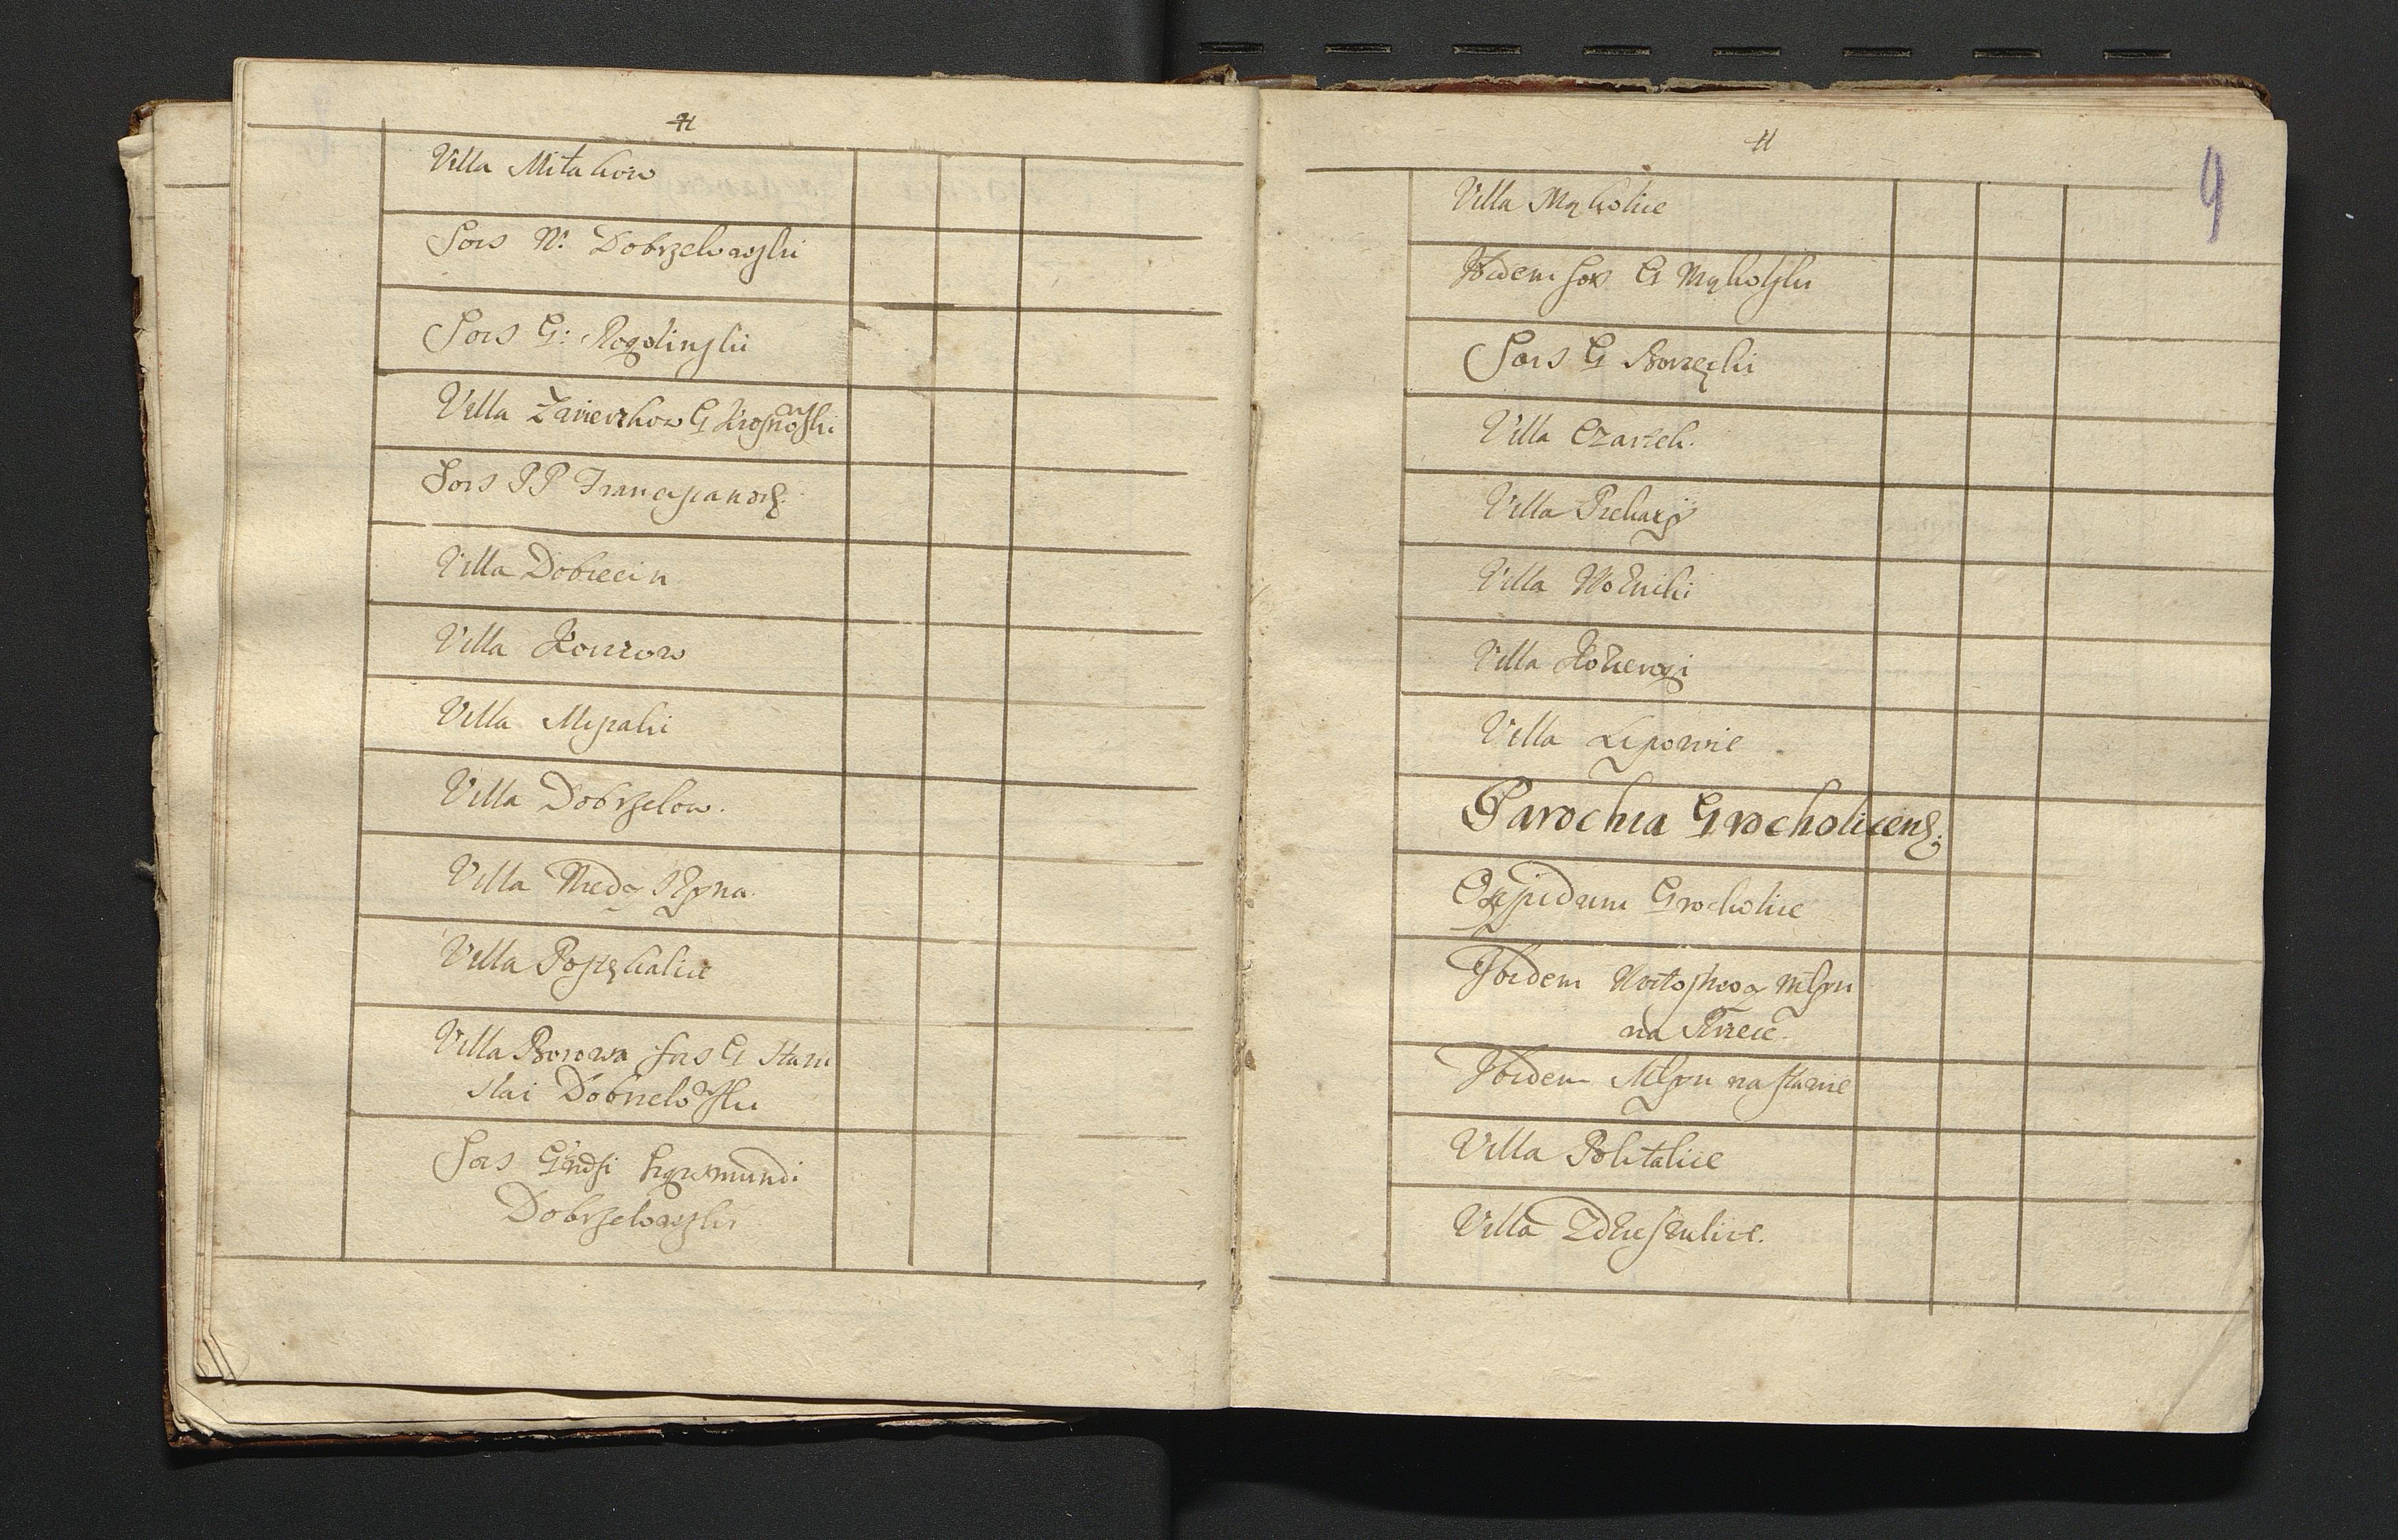 H
Villa Mitakow
Sors N: Dobrzelowski
Sors G: Rogolinski
Villa Zawierzkow G Krosnowski
Sors PP Franciscanor.
Villa Dobiecin
Villa Konzow
Villa Mispalki
Villa Dobrzelow.
Villa Niedyszyna.
Villa Postękalice
Villa Borowa sors G Stani
slai Dobrzelowski
Sors Gndsi Sigismundi
Dobrzelowski
H
9
Villa Mąkolice
Ibidem sors G Mąkolski
Sors G Borzęcki
Villa Czartek.
Villa Piekary
Villa Woźniki
Villa Kożuergi
Villa Leponie
Parochia Grocholicens.
Oppidum Grocholice
Ibidem Młyn
na Rzece.
Ibidem Młyn na stawie
Villa Politalice
Villa Zdzieszulice.